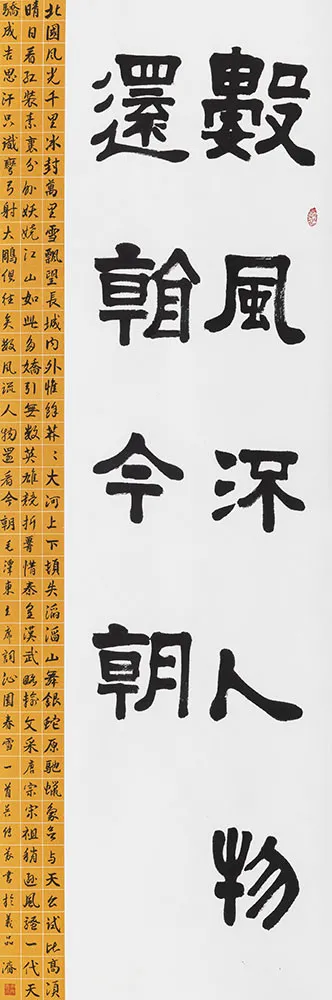 數風流人物
還看今朝
北國風光千里冰封萬里雪飄望長城內外惟餘莽〻大河上下頓失滔滔山舞銀蛇原馳蠟象欲與天公試比高須
晴日看紅裝素裹分外妖嬈江山如此多嬌引無數英雄競折腰惜秦皇漢武略輸文采唐宗宋祖稍遜風騷一代天
驕成吉思汗只識彎弓射大鵰俱往矣數風流人物還看今朝毛澤東主席詞沁園春雪一首吳書於義品齋